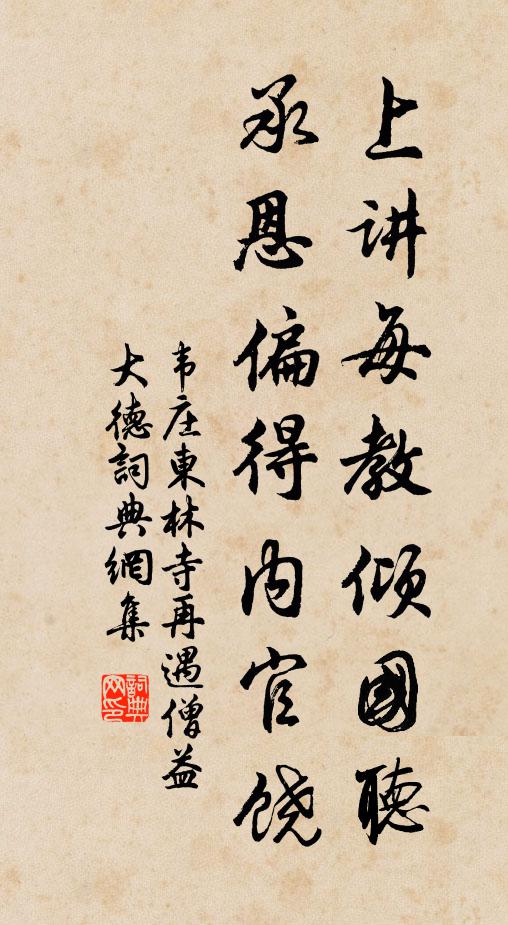 上讲每教倾國聽
承恩偏得内官饶
韦庄東林寺再遇僧益
大德詞典網集
詞典网印